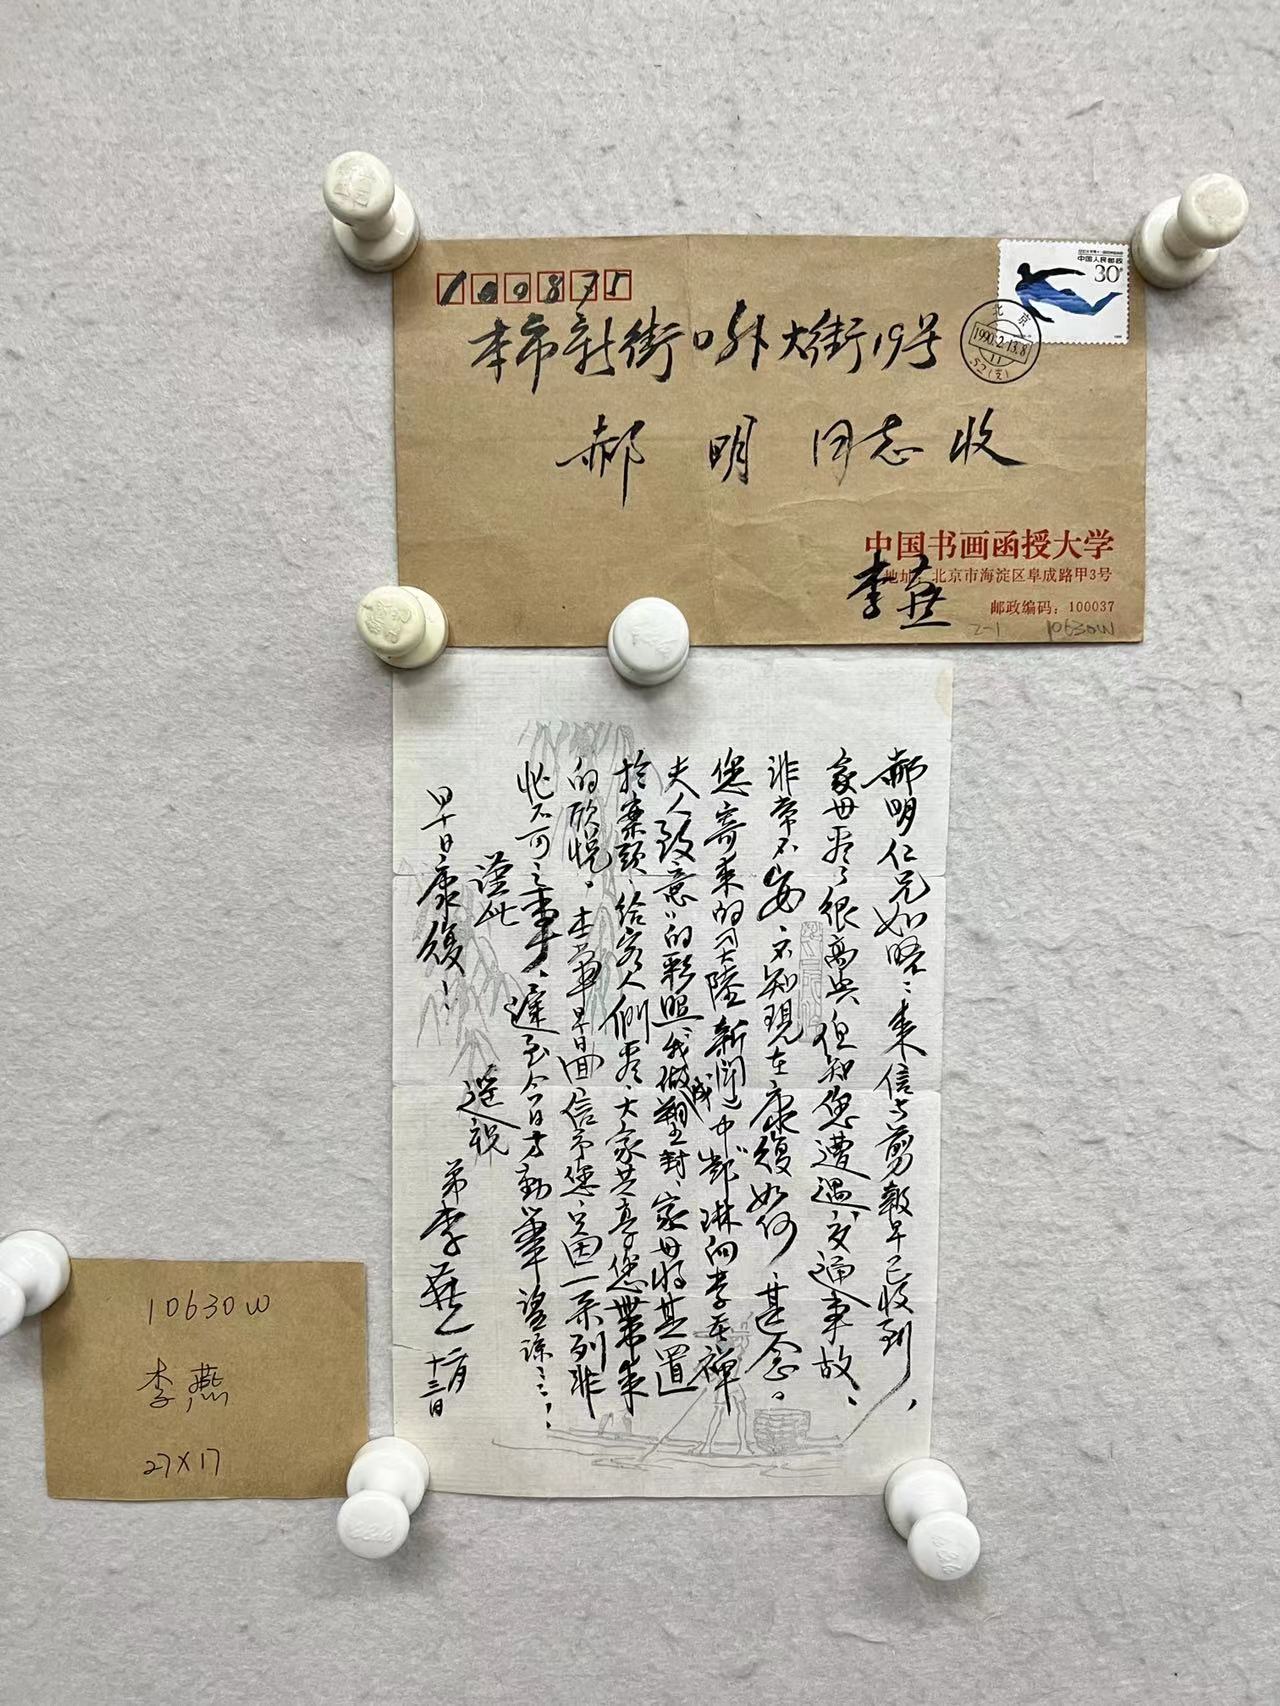 100875
中国人民邮政
30
北京
1990.12.13.8
11
52(支)
本市新街口外大街19号
郝明同志收
中国书画函授大学
地址:北京市海淀区阜成路甲3号
李燕
邮政编码:100037
2-1 10630W
郝明仁兄如晤:来信与剪報早已收到,
家母看了很高兴但知您遭遇交通事故、
非常不安、不知現在康復如何、甚念。
您寄来的《大陸新聞》中“鄧琳向李苦禅
夫人致意”的彩照我做成塑封、家母将其置
於案頭、给客人們看、大家共享您帶来
的欣悦。本當早日回信予您、只因一系列非
忙不可之事、遲至今日方動筆望諒……!
谨此
遥祝
早日康復!
弟李燕
十二月
十三日
10630W
李燕
27X17